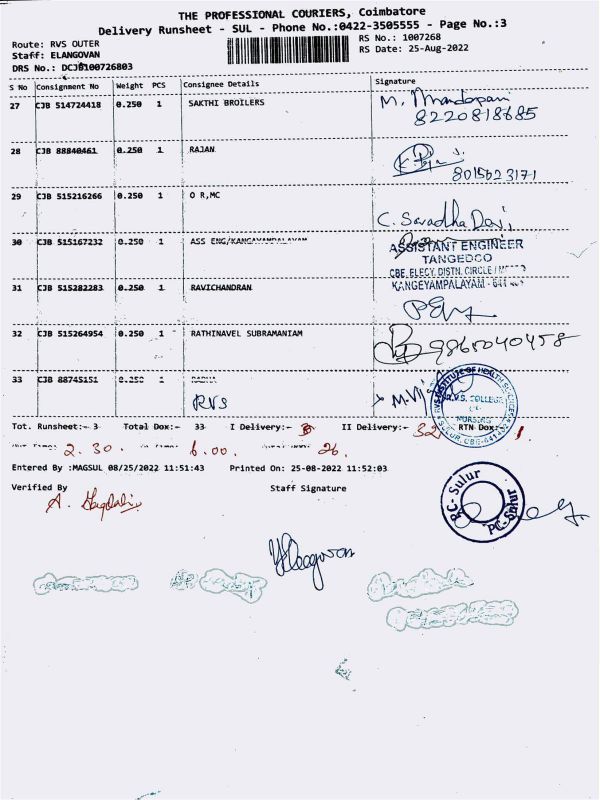 THE PROFESSIONAL COURIERS, Coimbatore
Delivery Runsheet - SUL - Phone No.:0422-3505555 - Page No.:3
Route: RVS OUTER
RS No.: 1007268
Staff: ELANGOVAN
RS Date: 25-Aug-2022
DRS No.: DCJB100726803
S No Consignment No Weight PCS Consignee Details Signature
27 CJB 514724418 0.250 1 SAKTHI BROILERS
8220818685
28 CJB 88840461 0.250 1 RAJAN
8015623171
29 CJB 515216266 0.250 1 O R,MC
C. Saradha Devi,
30 CJB 515167232 0.250 1 ASS ENG/KANGAYAMPALAYAM
ASSISTANT ENGINEER
TANGEDCO
CBE. ELECY. DISTN. CIRCLE /
KANGEYAMPALAYAM - 641
31 CJB 515282283 0.250 1 RAVICHANDRAN
32 CJB 515264954 0.250 1 RATHINAVEL SUBRAMANIAM
9865040458
33 CJB 88745151 0.250 1 RADHA
RVS
RVS INSTITUTE OF HEALTH SCIENCES
R.V.S. COLLEGE
OF
NURSING
SULUR, CBE-641
Tot. Runsheet:- 3 Total Dox:- 33 I Delivery:- II Delivery:- 32 RTN Dox:- 1
2.30. 6.00. 26.
Entered By :MAGSUL 08/25/2022 11:51:43 Printed On: 25-08-2022 11:52:03
Verified By Staff Signature
PC-Sulur
PC-Sulur